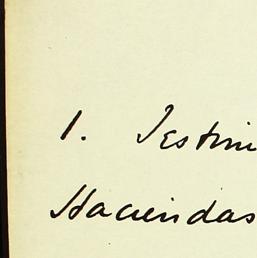 1. Testim
Haciendas